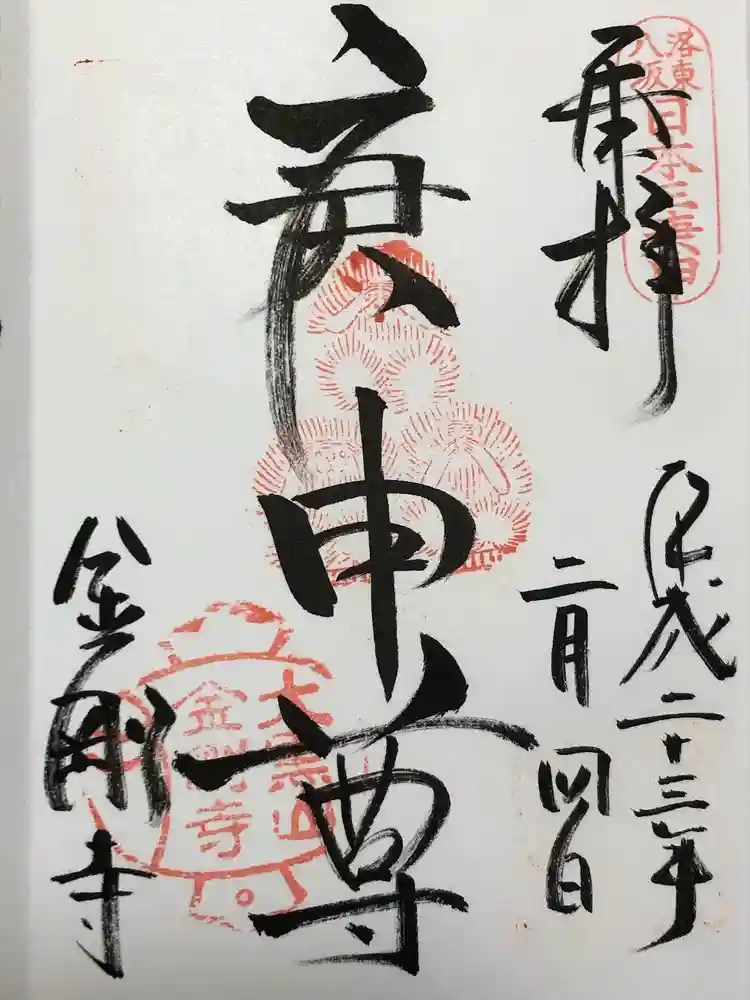 奉拝
洛東
八坂
日本三庚申
平成二十三年
二月四日
庚申尊
大黒山
金剛寺
金剛寺